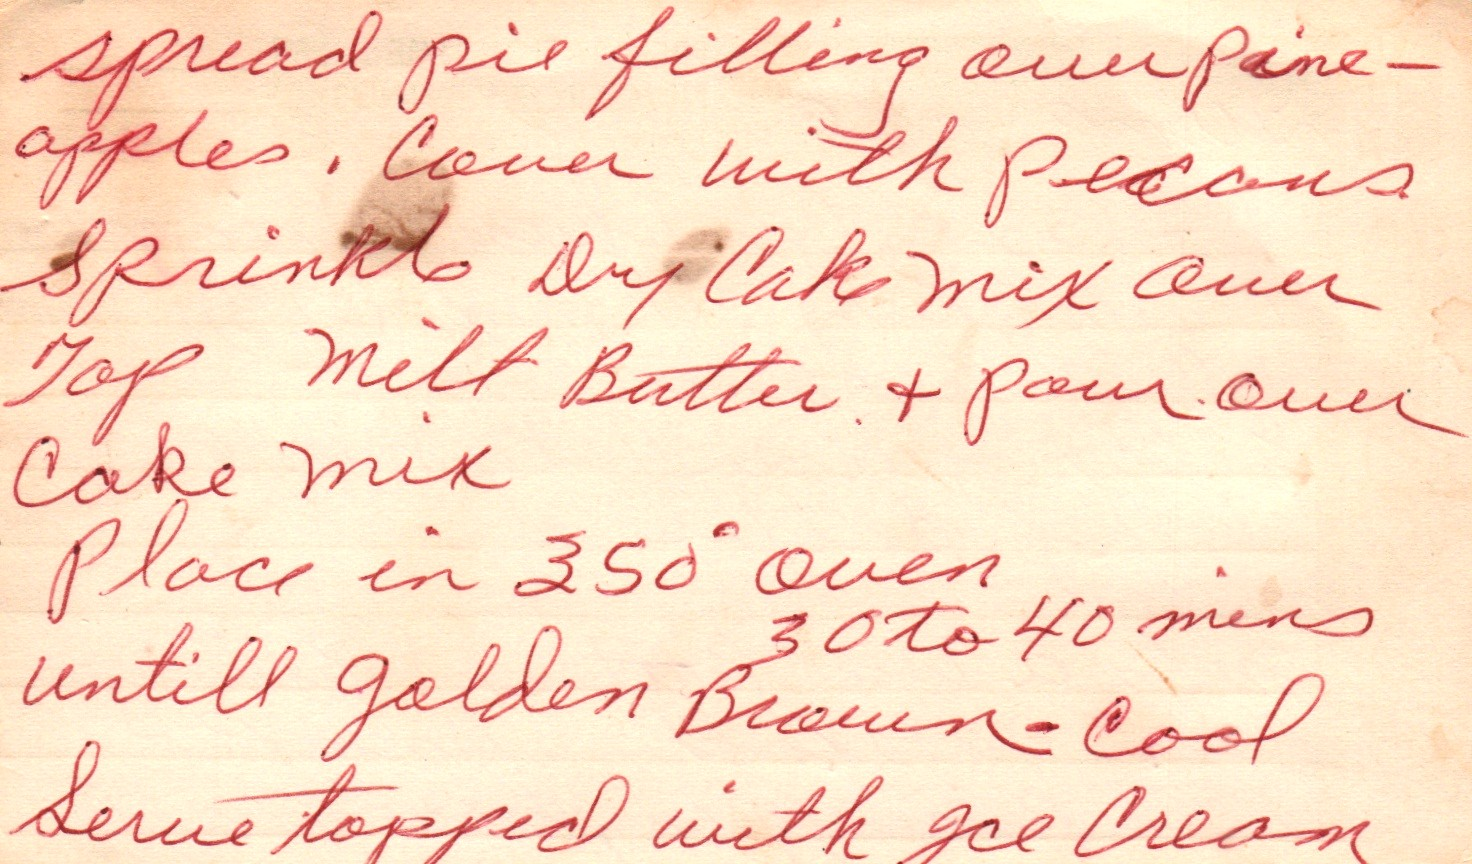 spread pie filling over Pine-
apples. Cover with Pecans
Sprinkle Dry Cake Mix Over
Top Milt Butter + Pour over
Cake Mix
Place in 350° oven
30 to 40 mins
untill golden Brown - Cool
Serve topped with Ice Cream